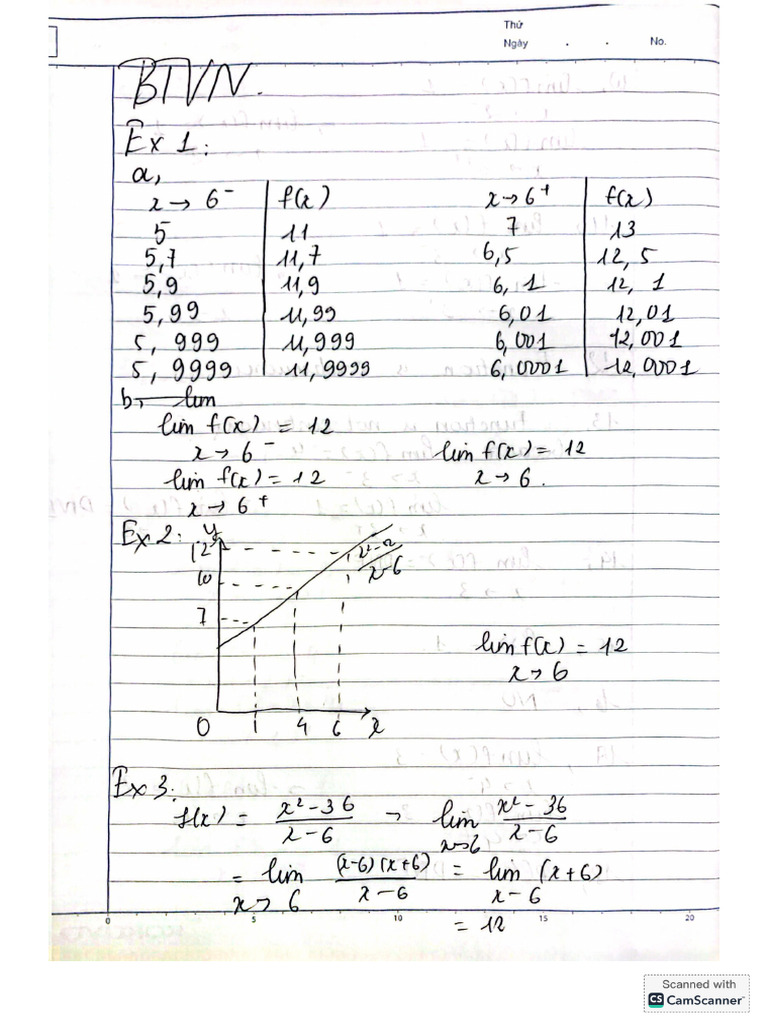 Thứ
Ngày . . No.
BTVN.
Ex 1:
a,
x → 6⁻ f(x) x → 6⁺ f(x)
5 11 7 13
5,7 11,7 6,5 12,5
5,9 11,9 6,1 12,1
5,99 11,99 6,01 12,01
5,999 11,999 6,001 12,001
5,9999 11,9999 6,0001 12,0001
b, lim
lim f(x) = 12
x → 6⁻ lim f(x) = 12
lim f(x) = 12 x → 6.
x → 6⁺
Ex 2: y
12
10
7
lim f(x) = 12
x → 6
0 1 4 6 x
Ex 3:
f(x) = x²-36 / x-6 → lim x→6 x²-36 / x-6
= lim x→6 (x-6)(x+6) / x-6 = lim x-6 (x+6)
= 12
0 5 10 15 20
Scanned with
CS CamScanner